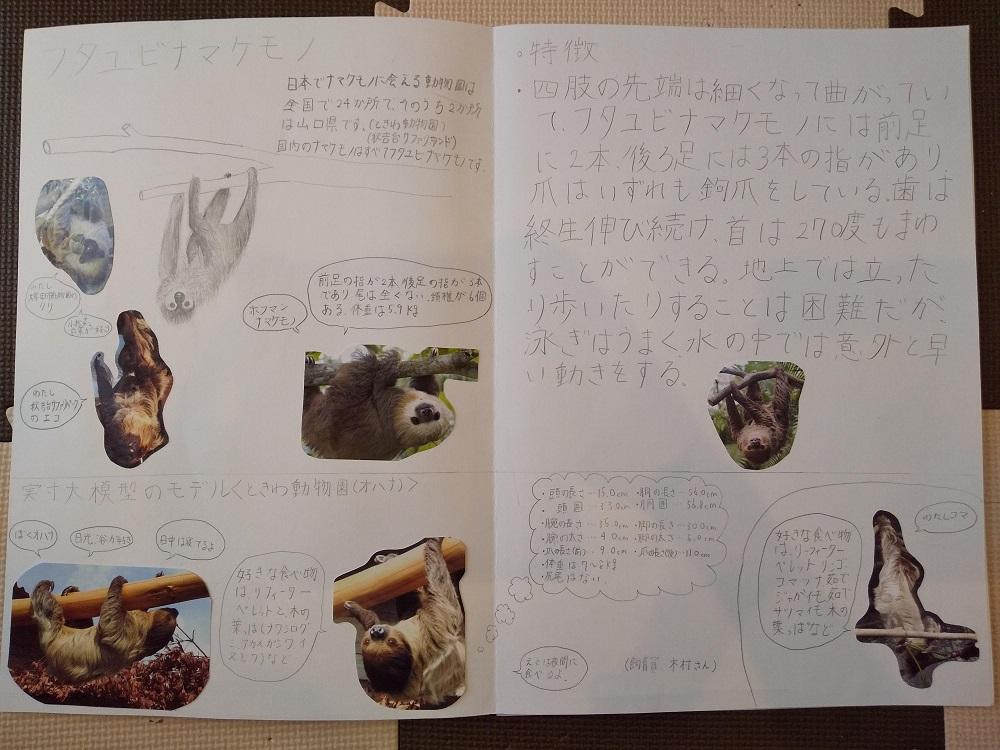 フタユビナマケモノ
日本でナマケモノに会える動物園は
全国で24か所で、そのうち2か所
は山口県です。(ときわ動物園)
(秋吉台サファリランド)
国内のナマケモノはすべてフタユビナマケモノです。
わたし
クリ
ホフマン
ナマケモノ
前足の指が2本、後足の指が3本
であり尾は全くない。頚椎が6個
ある。体重は5.9kg
わたし
のエコ
実寸大模型のモデル<ときわ動物園(オハナ)>
ぼくオハナ
日光浴が好き
日中は寝てるよ
好きな食べ物
はリーフィーター
ペレットと、木の
葉っぱ
など
えさは夜間に
食べるよ。
。特徴
・四肢の先端は細くなって曲がってい
て、フタユビナマケモノには前足
に2本、後ろ足には3本の指があり
爪はいずれも鉤爪をしている。歯は
終生伸び続け、首は270度もまわ
すことができる。地上では立った
り歩いたりすることは困難だが、
泳ぎはうまく、水の中では、意外と早
い動きをする。
・頭の長さ…15.0cm ・胴の長さ…56.0cm
・頭囲…33.0cm ・胴囲…56.8cm
・腕の長さ…35.0cm ・脚の長さ…30.0cm
・腕の太さ…4.0cm ・脚の太さ…6.0cm
・体重は7〜8kg
・尻尾はない
(飼育員 木村さん)
わたしコマ
好きな食べ物
は、リーフィーター
ペレット リンゴ
コマツナ 茹で
ジャがイモ 茹で
サツマイモ 木の
葉っぱなど